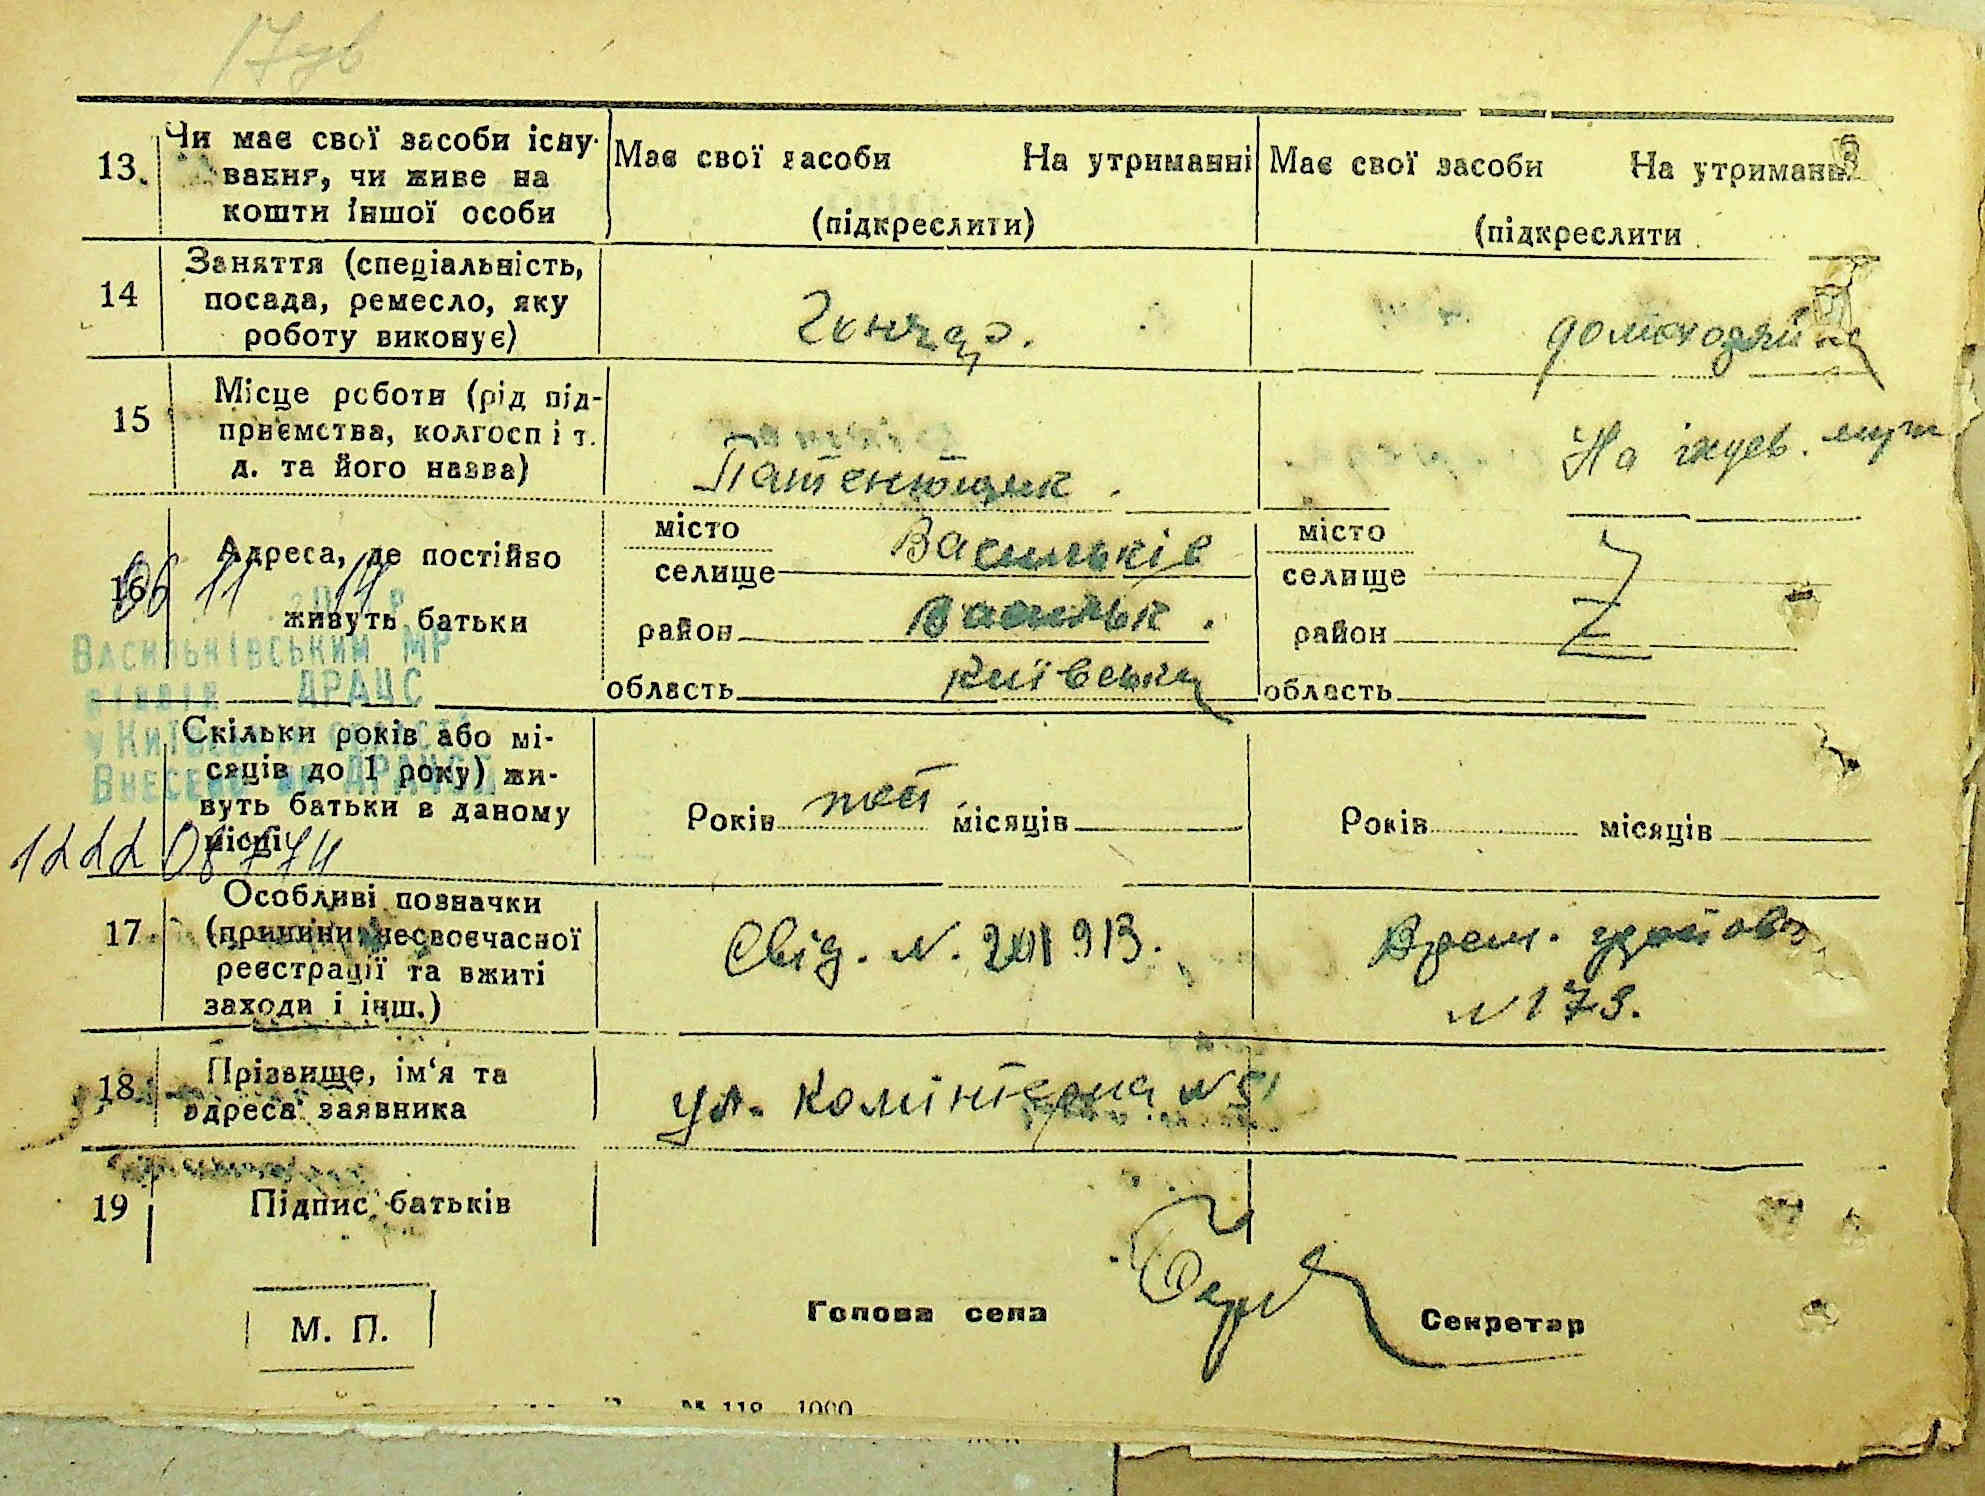 13. Чи має свої засоби існу-
вання, чи живе на
кошти іншої особи
Має свої засоби На утриманні
(підкреслити)
Має свої засоби На утриманні
(підкреслити
14 Заняття (спеціальність,
посада, ремесло, яку
роботу виконує)
Гончар.
домохозяйка
15 Місце роботи (рід під-
приємства, колгосп і т.
д. та його назва)
Патентщик.
На іждев. муж
16 Адреса, де постійно
живуть батьки
місто
селище Васильків
район Васильк.
область Київська
місто
селище
район
область
06 11 14
Васильківським МР
відділ ДРАЦС
у Київській області
Внесено до ДРАЦСГ
Скільки років або мі-
сяців до 1 року) жи-
вуть батьки в даному
місці
Років пост. місяців
Років місяців
17. Особливі позначки
(причини несвоєчасної
реєстрації та вжиті
заходи і інш.)
Свід. N. 201913.
Врем. удостов
N 173.
18. Прізвище, ім'я та
адреса заявника
ул. Комінтерна N 51
19 Підпис батьків
М. П.
Голова села
Секретар